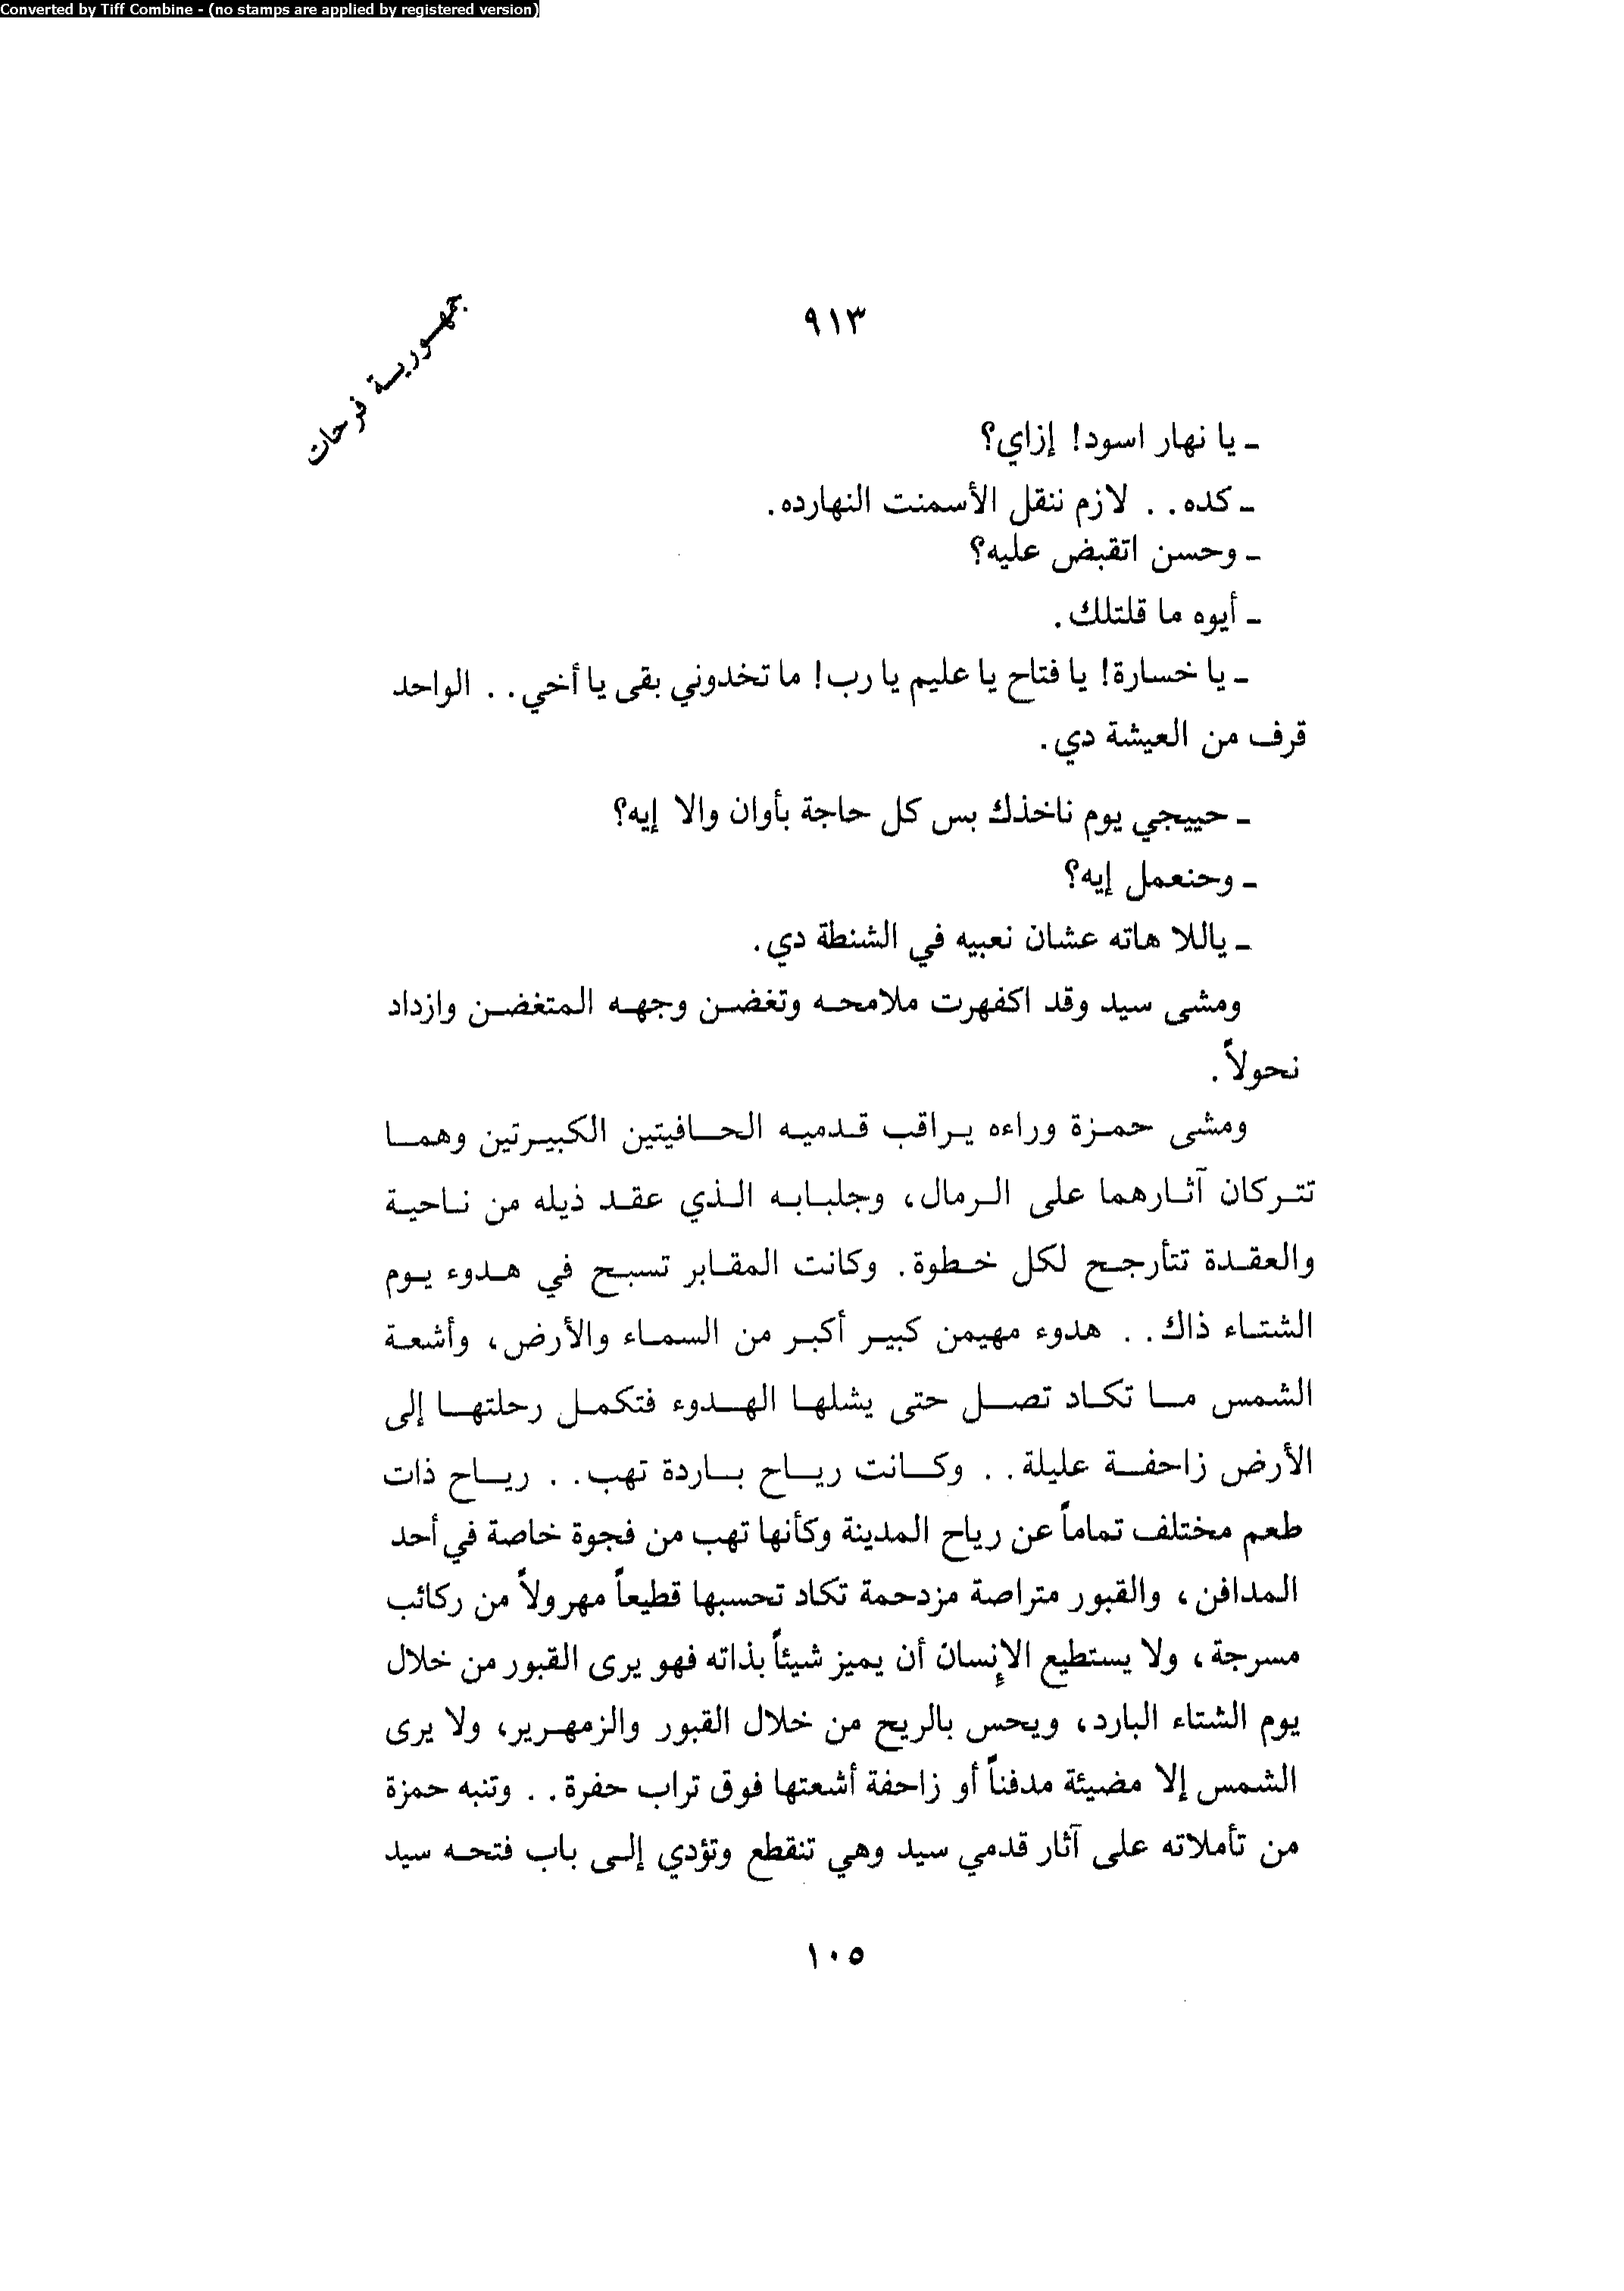 Converted by Tiff Combine - (no stamps are applied by registered version)
٩١٣
جمهورية فرحات
ـ يا نهار اسود! إزاي؟
ـ كده. . لازم ننقل الأسمنت النهارده.
ـ وحسن اتقبض عليه؟
ـ أيوه ما قلتلك.
ـ يا خسارة! يا فتاح يا عليم يا رب! ما تخدوني بقى يا أخي. . الواحد
قرف من العيشة دي.
ـ حييجي يوم ناخذك بس كل حاجة بأوان والا إيه؟
ـ وحنعمل إيه؟
ـ ياللا هاته عشان نعبيه في الشنطة دي.
ومشى سيد وقد اكفهرت ملامحه وتغضن وجهه المتغضن وازداد
نحولاً.
ومشى حمزة وراءه يراقب قدميه الحافيتين الكبيرتين وهما
تتركان آثارهما على الرمال، وجلبابه الذي عقد ذيله من ناحية
والعقدة تتأرجح لكل خطوة. وكانت المقابر تسبح في هدوء يوم
الشتاء ذاك. . هدوء مهيمن كبير أكبر من السماء والأرض، وأشعة
الشمس ما تكاد تصل حتى يشلها الهدوء فتكمل رحلتها إلى
الأرض زاحفة عليلة. . وكانت رياح باردة تهب. . رياح ذات
طعم مختلف تماماً عن رياح المدينة وكأنها تهب من فجوة خاصة في أحد
المدافن، والقبور متراصة مزدحمة تكاد تحسبها قطيعاً مهرولاً من ركائب
مسرجة، ولا يستطيع الإنسان أن يميز شيئاً بذاته فهو يرى القبور من خلال
يوم الشتاء البارد، ويحس بالريح من خلال القبور والزمهرير، ولا يرى
الشمس إلا مضيئة مدفناً أو زاحفة أشعتها فوق تراب حفرة. . وتنبه حمزة
من تأملاته على آثار قدمي سيد وهي تنقطع وتؤدي إلى باب فتحه سيد
١٠٥